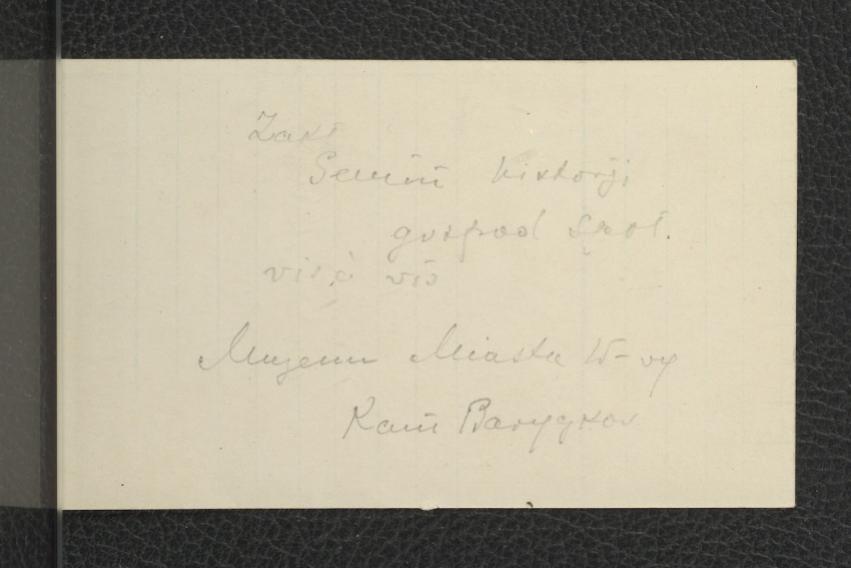 Zakł
Semin historji
gospod społ.
vis à vis
Muzeum Miasta W-wy
Kam Baryczków